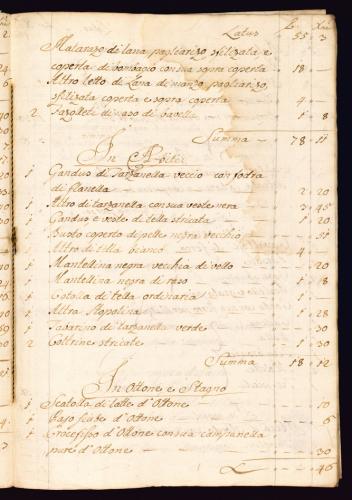 Latus — 55 3
Matarazo di lana pagliarizo, sfilzata e
coperta di bombagio con sua sopra coperta — 18 —
Altro letto di Lana di manzo, pagliarizo,
sfilzata coperta e sopra coperta — 4 —
2 Fazoleti di naso di bavella — 1 8
Summa — 78 11
In
1 Ganduo di Tarzanella vechio con fodra
di flanella — 2 20
1 Altro di tarzanella con sua veste nera — 3 45
1 Ganduo e veste di tella stricata — 1 20
1 Busto coperto di pelle negra vechio
Altro di tella bianco — 4
1 Mantellina negra vechia di vello — 20
1 Mantellina negra di raso — 1 8
1 Cotola di tella ordinaria — 1
1 Altra Stopolina — 1 28
1 Tabarino di tarzanella verde — 30
2 Coltrine stricate — 1 30
Summa — 18 12
In Ottone e Stagno
1 Scatolla di latte d'Ottone — 10
1 d'Ottone — 6
1 Crocefisso d'Ottone con sua campanella
pure d'Ottone — 30
46